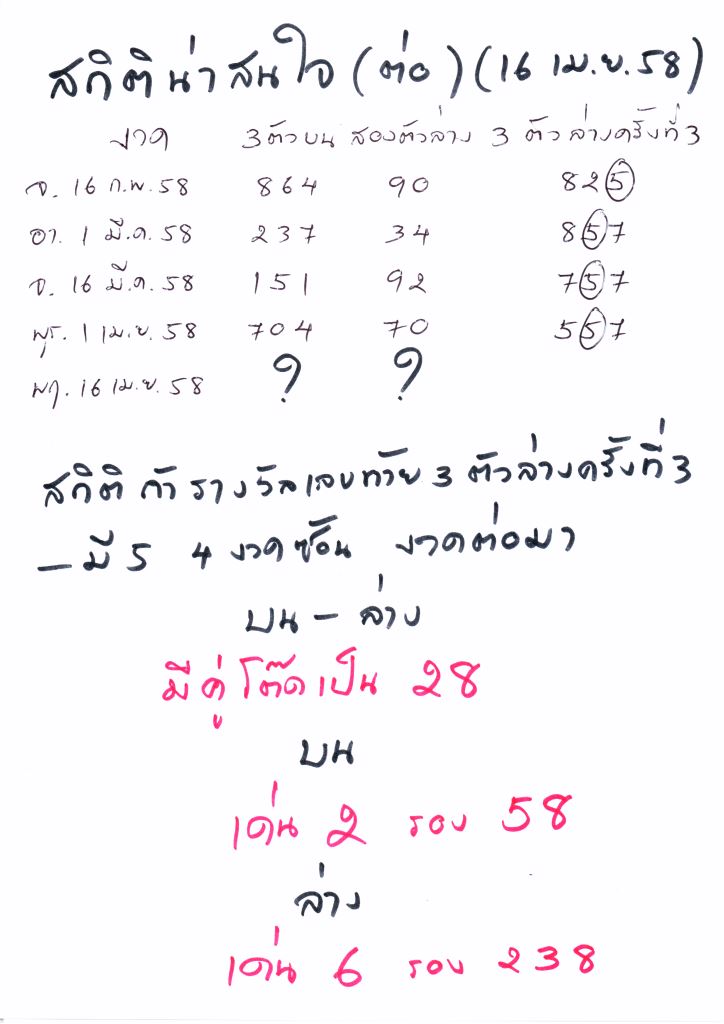 สถิติน่าสนใจ (ต่อ) (16 เม.ย. 58)
งวด 3 ตัวบน สองตัวล่าง 3 ตัวล่างครั้งที่ 3
จ. 16 ก.พ. 58 864 90 825
อา. 1 มี.ค. 58 237 34 857
จ. 16 มี.ค. 58 151 92 757
พุธ. 1 เม.ย. 58 704 70 557
พฤ. 16 เม.ย. 58 ? ?
สถิติ ถ้า รางวัลเลขท้าย 3 ตัวล่างครั้งที่ 3
- มี 5 4 งวดซ้อน งวดต่อมา
บน - ล่าง
มีคู่โต๊ดเป็น 28
บน
เด่น 2 รอง 58
ล่าง
เด่น 6 รอง 238